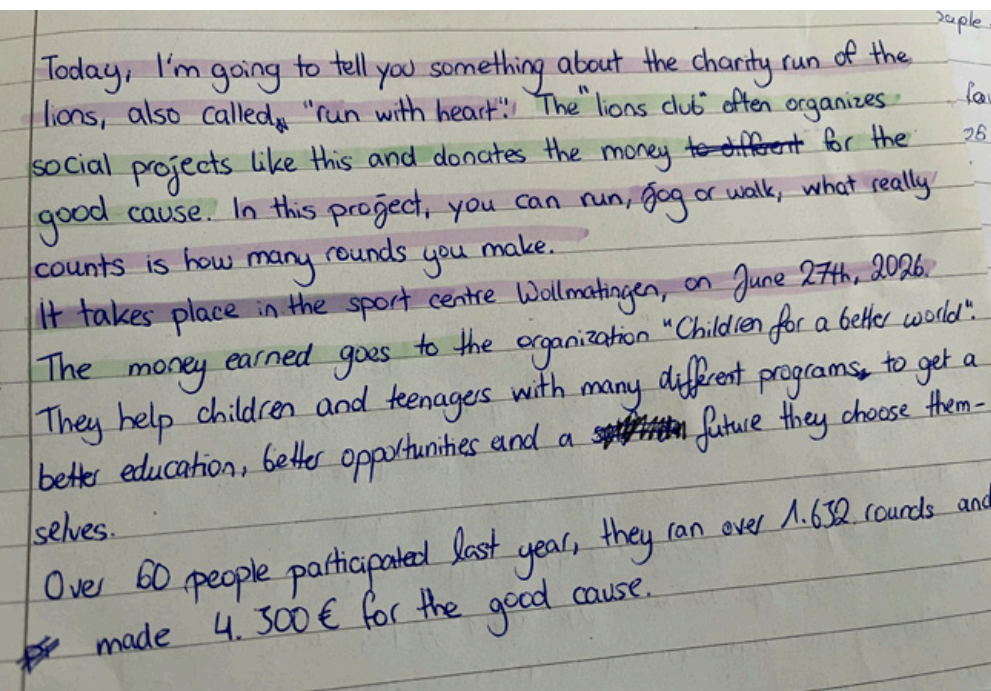 Today, I'm going to tell you something about the charity run of the
lions, also called "run with heart". The "lions club" often organizes
social projects like this and donates the money to different for the
good cause. In this project, you can run, jog or walk, what really
counts is how many rounds you make.
It takes place in the sport centre Wollmatingen, on June 27th, 2026.
The money earned goes to the organization "Children for a better world".
They help children and teenagers with many different programs, to get a
better education, better opportunities and a future they choose them-
selves.
Over 60 people participated last year, they ran over 1.632 rounds and
made 4.300 € for the good cause.